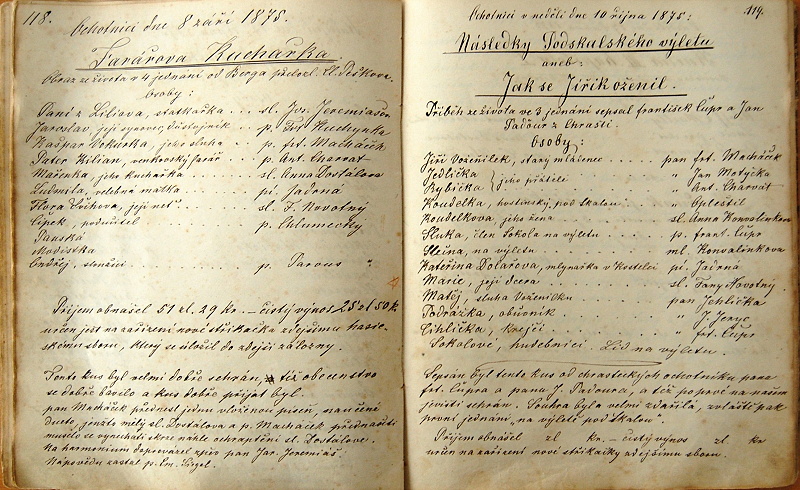 118.
Ochotníci dne 8 září 1875.
Farářova Kuchařka.
Obraz ze života v 4 jednání od Berga přelož. Peškova.
osoby:
Paní z Liliova, statkářka . . . sl. Jos. Jeremiášon
Jaroslav, její synovec, důstojník . . p. Kuchynka
Kašpar Vokurka, jeho sluha . . p. frt. Macháček
Pater Kilian, venkovský farář . . . p. Ant. Charvat
Mařenka, jeho kuchařka . . . . sl. Anna Dostálova
Ludmila, velebná matka . . . . pí. Jadrná
Flora její neť . . sl. F. Novotný
Čipek, podučitel . . . . . . p. Chlumecký
Panská
Modistka
Ondřej, sloužící . . . . . . p. Parous "
Příjem obnášel 51 zl. 29 kr. – čistý výnos 25 zl 50 k
určen jest na zařízení nové stříkačky zdejšímu hasič-
skému sboru, který se uložil do zdejší záložny.
Tento kus byl velmi dobře sehrán, též obecenstvo
se dobře bavilo a kus dobře přijat byl.
pan Macháček přednesl jednu vloženou píseň,
dueto, jenžto měly sl. Dostálova a p. Macháček přednášeti
muselo se vynechati skrze náhlé ochraptění sl. Dostálove.
Na harmonium doprovázel zpěv pan Jar. Jeremiáš.
Nápovědu zastal p. Em. Cígel.
119.
Ochotníci v neděli dne 10 října 1875:
Následky Podskalského výletu
aneb:
Jak se Jiřík oženil.
Příběh ze života ve 3 jednání sepsal františek Cupr a Jan
Padour z Chrasti.
Osoby:
Jiří Voženílek, starý mládenec . . . . . pan frt. Macháček
Jedlička } jeho přátelé . . . . . . " Jan Motyčka
Rybička . . . . . . " Ant. Charvát
Koudelka, hostinský, pod skalou . . . . " Oplestil
Koudelkova, jeho žena . . . . . . sl. Anna Konvalinkova
Sluka, člen Sokola na výletu . . . . p. frant. Cupr
na výletu . . . . . . . . ml. Konvalinkova
Kateřina Dolařova, mlynářka v Kostelci pí. Jadrná
Marie, její dcera . . . . . . . . sl. Fany Novotný
Matěj, sluha Voženílků . . . . . . pan Jehlička
Podrážka, obuvník . . . . . . . . " J. Jeryc
Cihlička, krejčí . . . . . . . . " frt. Cupr
Sokolové, hudebníci. Lid na výletu.
Sepsán byl tento kus od chrasteckých ochotníku pana
frt. Cupra a pana J. Padoura, a též poprvé na našem
jevišti sehrán. Souhra byla velmi zdařilá, zvláště pak
první jednání „na výletě pod skalou".
Příjem obnášel zl kr. – čistý výnos zl kr
určen na zařízení nové stříkačky zdejšímu sboru.